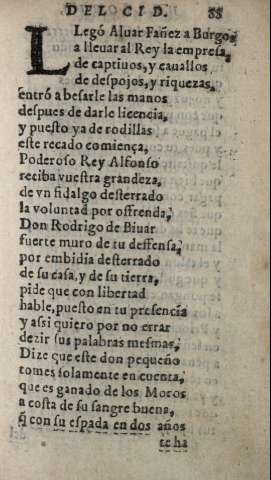 DEL CID. 88
LLegó Aluar Fañez a Burgos,
a lleuar al Rey la empresa,
de captiuos, y cauallos
de despojos, y riquezas,
entró a besarle las manos
despues de darle licencia,
y puesto ya de rodillas
este recado comiença,
Poderoso Rey Alfonso
reciba vuestra grandeza,
de vn fidalgo desterrado
la voluntad por offrenda,
Don Rodrigo de Biuar
fuerte muro de tu deffensa,
por embidia desterrado
de su casa, y de su tierra,
pide que con libertad
hable, puesto en tu presencia
y assi quiero por no errar
dezir sus palabras mesmas,
Dize que este don pequeño
tomes solamente en cuenta,
que es ganado de los Moros
a costa de su sangre buena,
q̃ con su espada en dos años
te ha